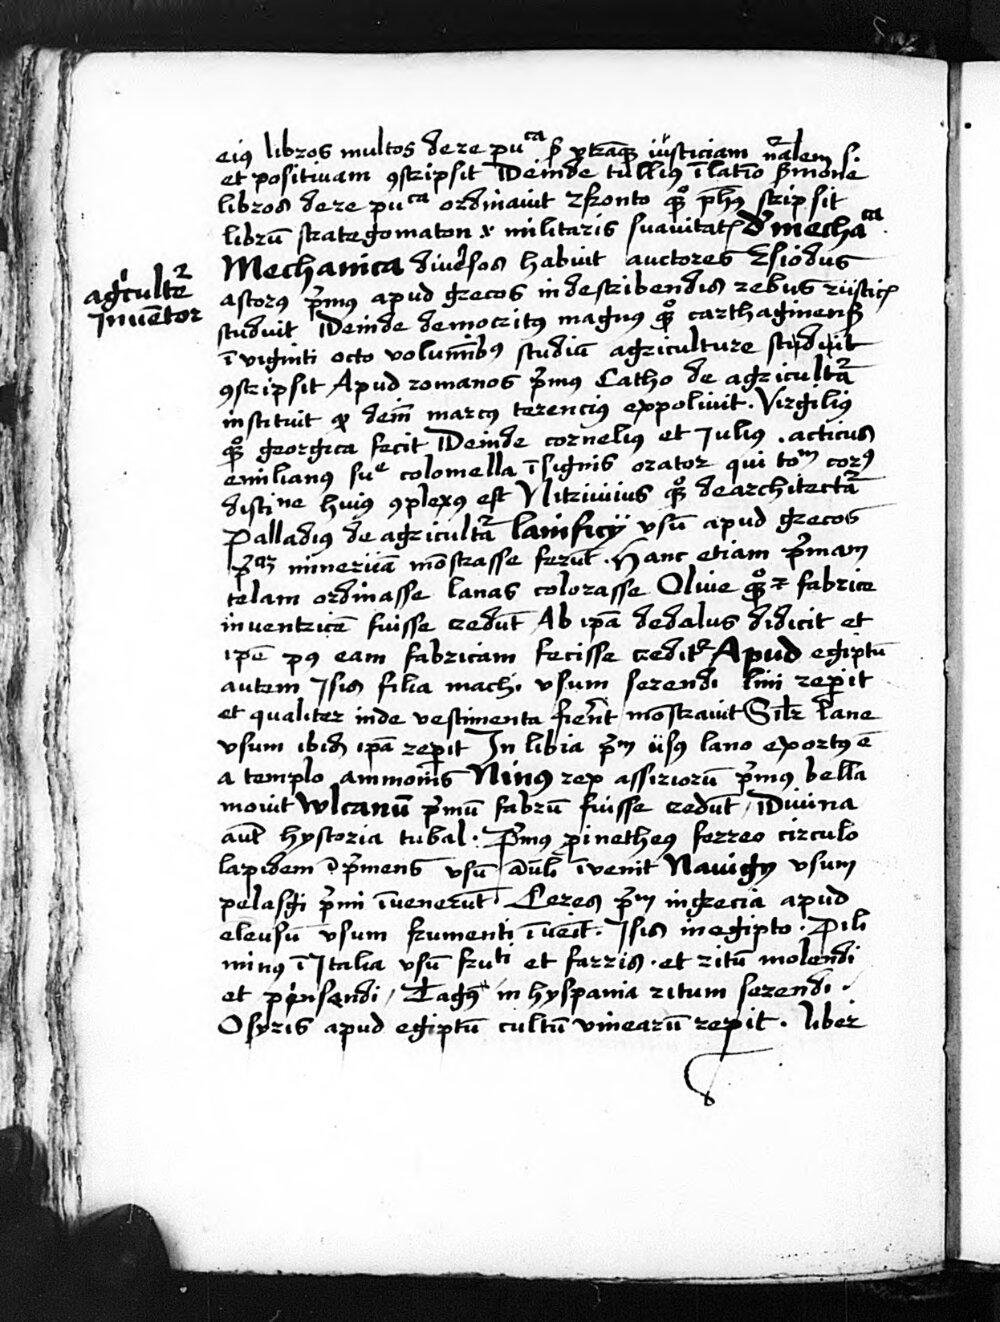 eiꝰ libros multos de re puᶜᵃ ẜ vtrāqꝫ iusticiam nr̄alem .s.
et positiuam ꝯscripsit Deinde tulliꝰ ī latīo ẜmone
libros de re puᶜᵃ ordinauit Fronto qꝫ° ph̄ꝰ scripsit
librū strategomaton militaris suauitatꝭ De mechaᶜᵃ.
Mechanica diuersos habuit auctores Esiodus
agͥcultᵉ
inuētor
astorꝰ p̄mꝰ apud grecos in describendis rebus rusticꝭ
studuit Deinde democritꝰ magnꝰ qꝫ° carthaginenẜ
ī viginti octo volumībꝰ studiū agriculture
ꝯscripsit Apud romanos p̄mꝰ Catho de agricultᵃ
instituit qꝫ dein̄ marcꝰ terenciꝰ expoliuit. Virgiliꝰ
qꝫ° georgica fecit Deinde corneliꝰ et Juliꝰ . acticus
emilianꝰ suᵉ colomella īsignis orator qui toᵐ corꝰ
disciⁿᵉ huiꝰ ꝯplexꝰ est Vitruuius qꝫ° de architectᵃ
Palladiꝰ de agricultᵃ lanificij vsū apud grecos
p̄ᵃᵐ mineruā mōstrasse ferūt. Hanc etiam p̄mam
telam ordinasse lanas colorasse Oliue qꝫ° et fabrice
inuentricē fuisse credūt Ab ipā dedalus didicit et
ipē pꝰ eam fabricam fecisse creditᵉ Apud egiptū
autem Isis filia machi vsum serendi lini rep̄it
et qualiter inde vestimenta fierēt mostrauit Silr lane
vsum ibid̄ ipā rep̄it In libia p̄ᵐ usꝰ lano exortꝰ ē
a templo ammonis̄ Ninꝰ rex assiriorū p̄mꝰ bella
mouit Wlcanū p̄mū fabrū fuisse credūt / Diuina
aut̄ hystoria tubal. P̄mꝰ pinetheꝰ ferreo circulo
lapidem p̄mens vsū anuli īuenit Nauigij vsum
pelasgi p̄mi īuenerūt Ceres p̄ᵐ in grecia apud
eleusū vsum frumenti īueīt. Isis in egipto. Pili
minꝰ ī Italia vsū fruti et farris. et ritū molendi
et pinsendi / Tagꝰ in hyspania ritum serendi .
Osyris apud egiptū cultū vinearū rep̄it . liber